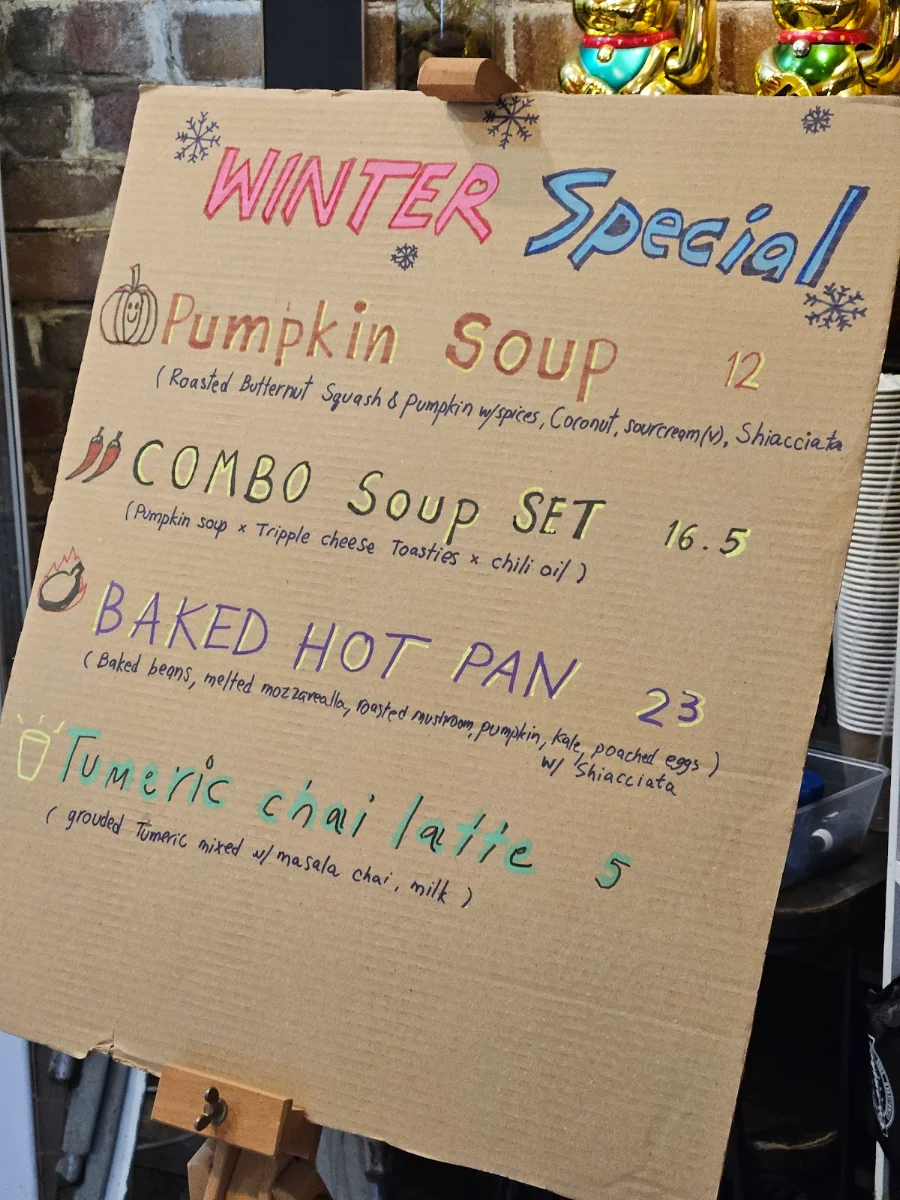 WINTER Special
Pumpkin Soup 12
(Roasted Butternut Squash & Pumpkin w/spices, Coconut, sourcream(v), Shiacciata
COMBO Soup SET 16.5
(Pumpkin soup x Tripple cheese Toasties x chili oil)
BAKED HOT PAN 23
(Baked beans, melted mozzarealla, roasted mushroom, pumpkin, kale, poached eggs)
w/ Shiacciata
Tumeric chai latte 5
(grouded Tumeric mixed w/ masala chai, milk)